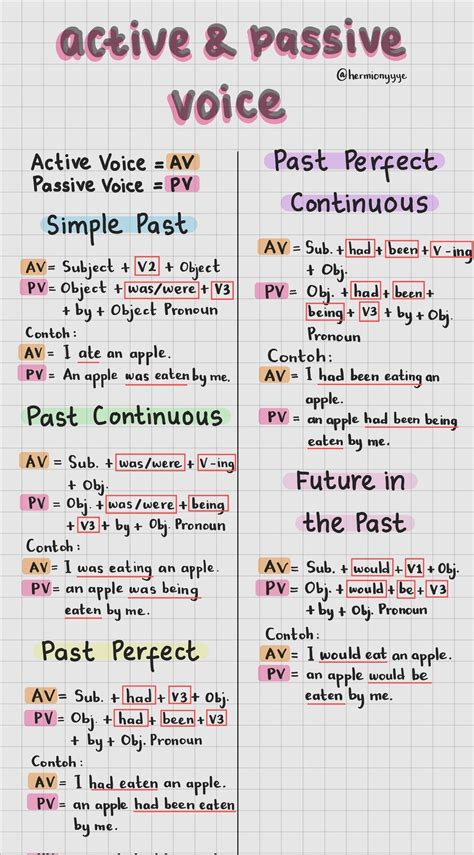 active & passive
@hermionyyye
voice
Active Voice = AV
Passive Voice = PV
Simple Past
AV = Subject + V2 + Object
PV = Object + was/were + V3
+ by + Object Pronoun
Contoh:
AV = I ate an apple.
PV = An apple was eaten by me.
Past Continuous
AV = Sub. + was/were + V-ing
+ Obj.
PV = Obj. + was/were + being
+ V3 + by + Obj. Pronoun
Contoh:
AV = I was eating an apple.
PV = an apple was being
eaten by me.
Past Perfect
AV = Sub. + had + V3 + Obj.
PV = Obj. + had + been + V3
+ by + Obj. Pronoun
Contoh:
AV = I had eaten an apple.
PV = an apple had been eaten
by me.
Past Perfect
Continuous
AV = Sub. + had + been + V-ing
+ Obj.
PV = Obj. + had + been +
being + V3 + by + Obj.
Pronoun
Contoh:
AV = I had been eating an
apple.
PV = an apple had been being
eaten by me.
Future in
the Past
AV = Sub. + would + V1 + Obj.
PV = Obj. + would + be + V3
+ by + Obj. Pronoun
Contoh:
AV = I would eat an apple.
PV = an apple would be
eaten by me.